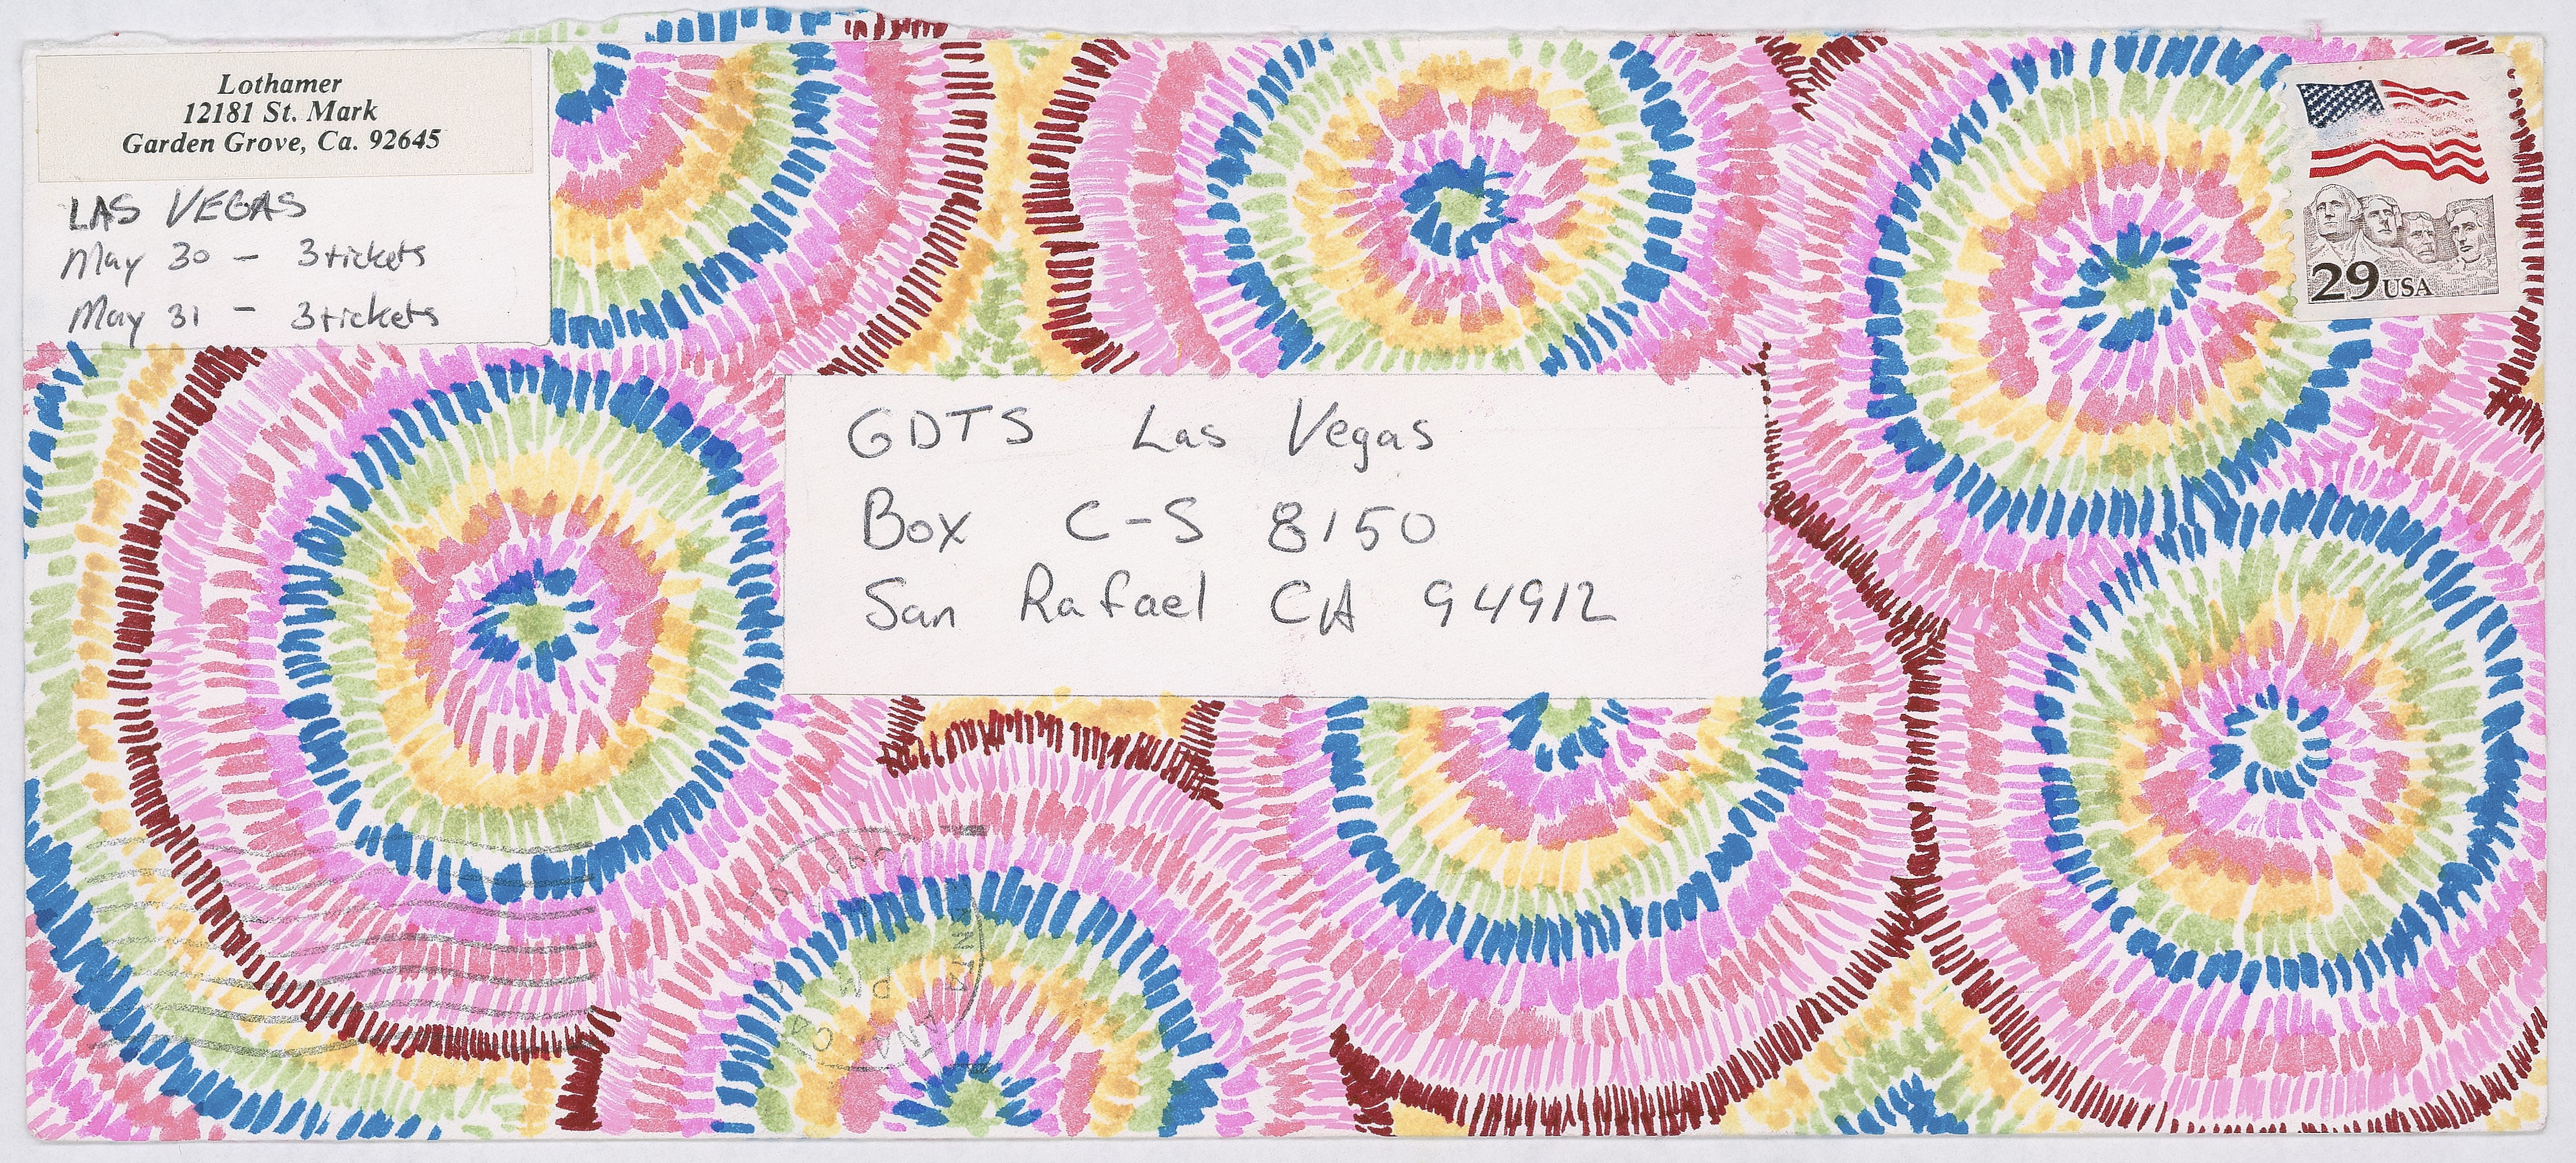 Lothamer
12181 St. Mark
Garden Grove, Ca. 92645
LAS VEGAS
May 30 - 3 tickets
May 31 - 3 tickets
29 USA
GDTS Las Vegas
Box C-S 8150
San Rafael CA 94912
PM
CA